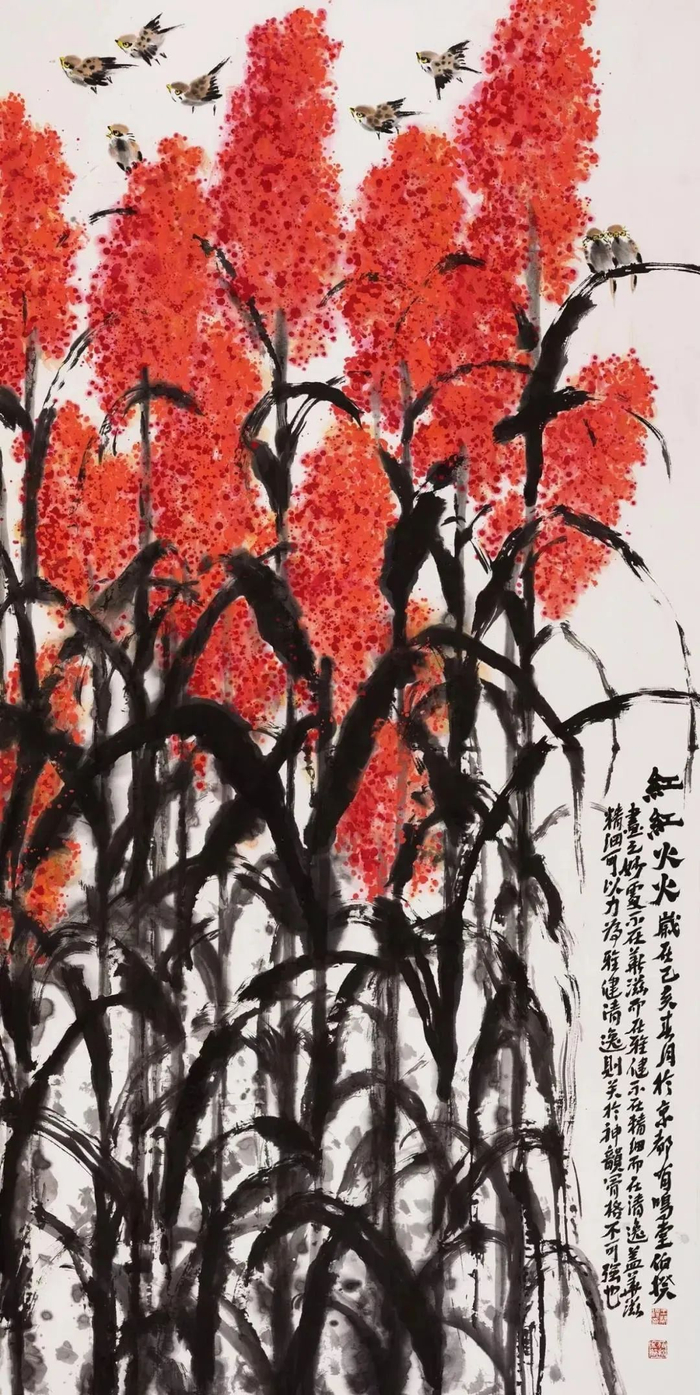 紅紅火火 歲在己亥春月於京都有鳴堂伯揆
畫之妙處不在華滋而在雄健不在精細而在清逸蓋華滋
精細可以力為雄健清逸則关於神韻骨格不可强也